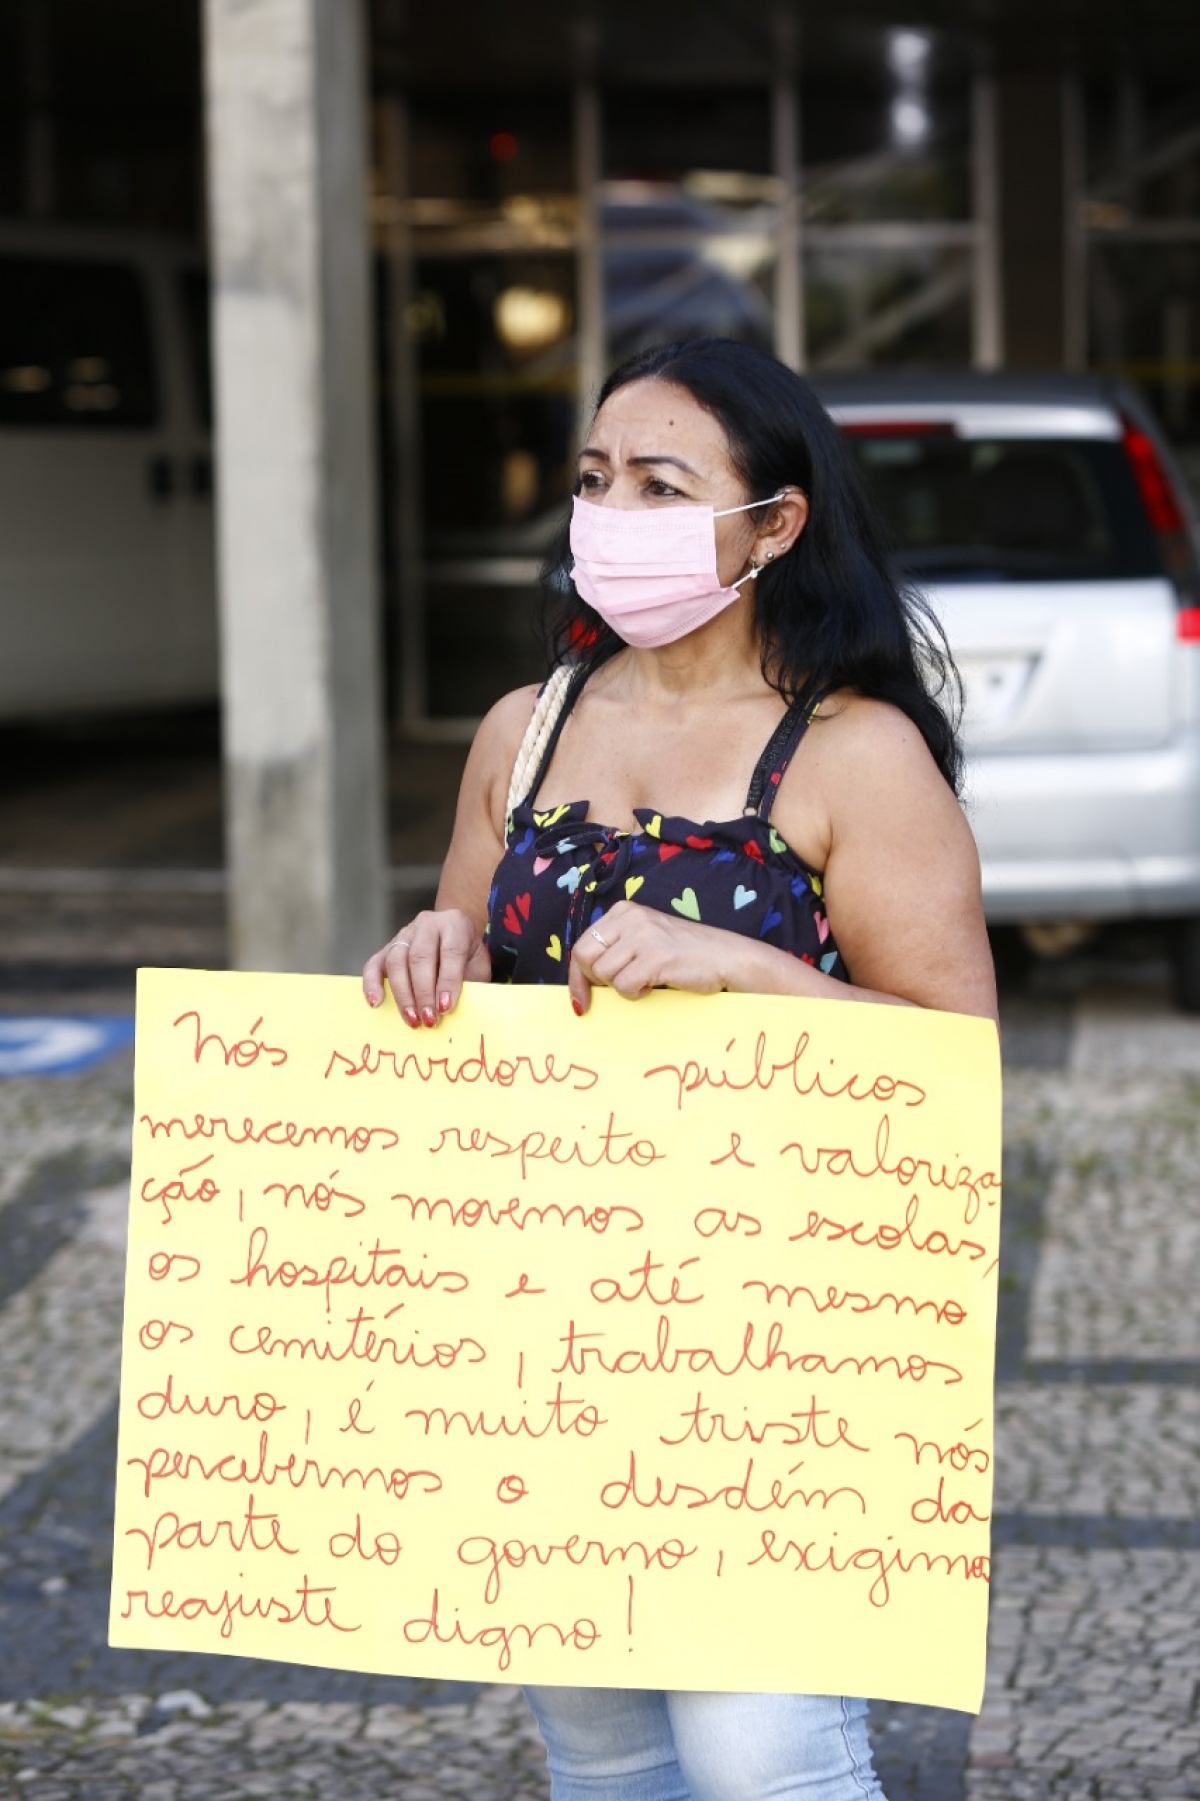 Nós servidores públicos
merecemos respeito e valoriza
ção, nós movemos as escolas,
os hospitais e até mesmo
os cemitérios, trabalhamos
duro, é muito triste nós
percebermos o desdém da
parte do governo, exigimos
reajuste digno!